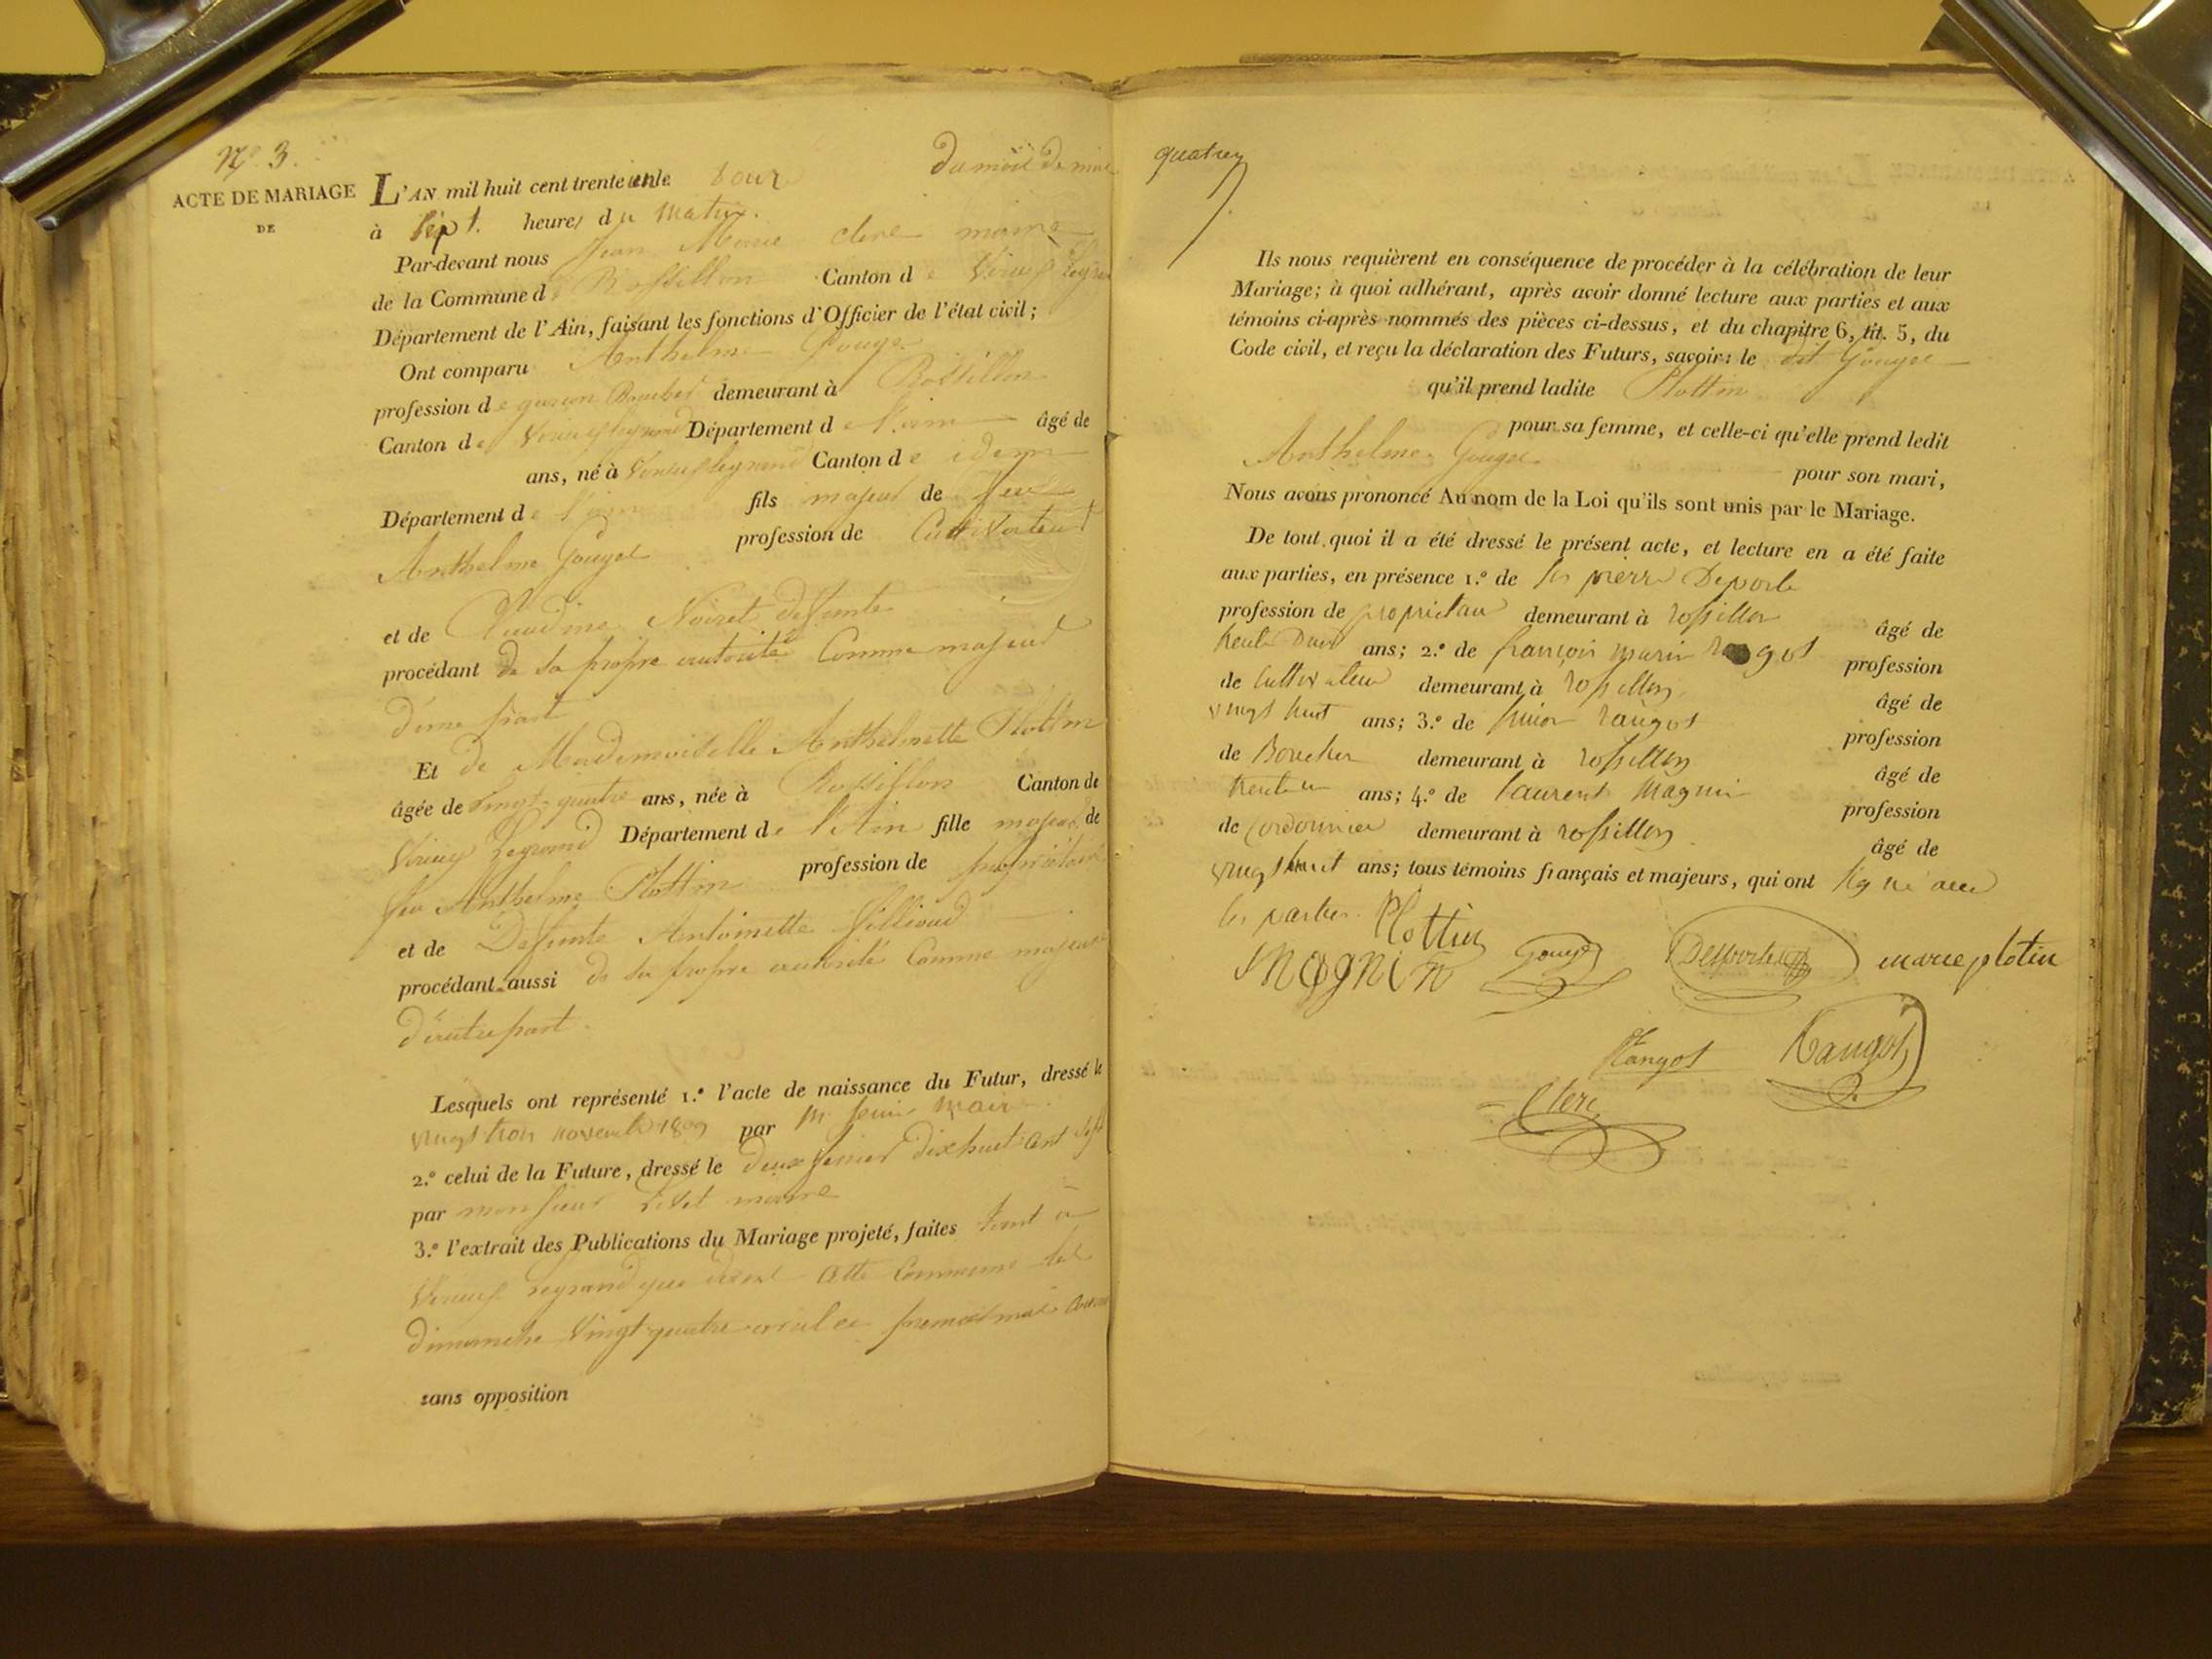 N.º 3.
ACTE DE MARIAGE
DE
L'AN mil huit cent trente un le douze du mois de mai
à sept heures du matin.
Par-devant nous Jean Marie Clerc maire
de la Commune de Rossillon Canton de Virieux legrand
Département de l'Ain, faisant les fonctions d'Officier de l'état civil ;
Ont comparu Anthelme Gouge
profession de garçon demeurant à Rossillon
Canton de Virieux legrand Département de l'ain âgé de
ans, né à Virieux legrand Canton de idem
Département de l'ain fils majeur de feu
Anthelme Gouge profession de Cultivateur
et de Claudine Noiret defunte
procédant de sa propre autorité Comme majeur
d'une part
Et de Mademoiselle Anthelmette Plottin
âgée de vingt-quatre ans, née à Rossillon Canton de
Virieux Legrand Département de l'Ain fille majeur de
feu Anthelme Plottin profession de propriétaire
et de Defunte Antoinette Fillioud
procédant aussi de sa propre autorité Comme majeure
d'autre part.
Lesquels ont représenté 1.º l'acte de naissance du Futur, dressé le
vingt trois novembre 1809 par M. maire
2.º celui de la Future, dressé le deux fevrier dix huit cent sept
par monsieur maire
3.º l'extrait des Publications du Mariage projeté, faites tant à
Virieux legrand que dans cette Commune les
dimanche vingt quatre avril et premier mai
sans opposition
quatre
Ils nous requièrent en conséquence de procéder à la célébration de leur
Mariage; à quoi adhérant, après avoir donné lecture aux parties et aux
témoins ci-après nommés des pièces ci-dessus, et du chapitre 6, tit. 5, du
Code civil, et reçu la déclaration des Futurs, savoir: le dit Gouge
qu'il prend ladite Plottin
pour sa femme, et celle-ci qu'elle prend ledit
Anthelme Gouge pour son mari,
Nous avons prononcé Au nom de la Loi qu'ils sont unis par le Mariage.
De tout quoi il a été dressé le présent acte, et lecture en a été faite
aux parties, en présence 1.º de pierre Deporte
profession de proprietair demeurant à rossillon âgé de
trente deux ans; 2.º de françois marin rangot profession
de cultivateur demeurant à rossillon âgé de
vingt huit ans; 3.º de rangot profession
de Boucher demeurant à rossillon âgé de
trente un ans; 4.º de laurent Magnin profession
de Cordonnier demeurant à rossillon âgé de
vingt huit ans; tous témoins français et majeurs, qui ont signé avec
les parties. Plottin
Magnin Gouge Desportes marie plotin
Rangot Rangot
Clerc